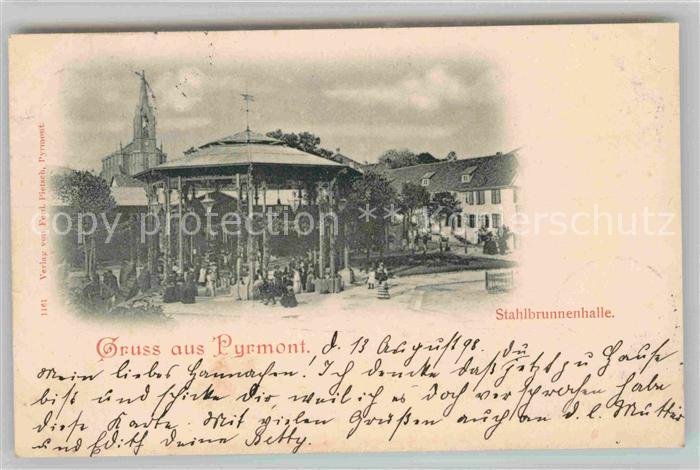 copy protection *** Kopierschutz
1161 Verlag von Ferd. Pietsch, Pyrmont.
Stahlbrunnenhalle.
Gruss aus Pyrmont. d. 13 August 98.
Mein liebes Hannachen! Ich denke daß Du jetzt zu Hause
bist und schicke Dir weil ich es doch versprochen habe
diese Karte. Mit vielen Grüßen auch an d. l. Mutter
und Edith Deine Betty.